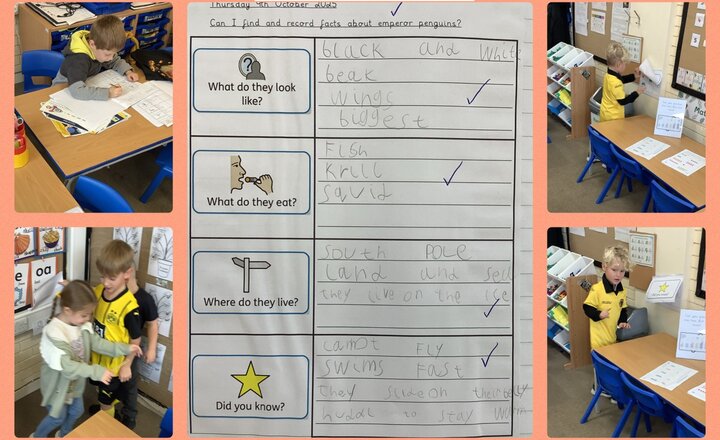 Thursday 9th October 2025
Can I find and record facts about emperor penguins?
What do they look like?
black and white
beak
wings
biggest
What do they eat?
Fish
Krill
Squid
Where do they live?
South Pole
Land and
they live on the ice
Did you know?
canot Fly
Swims Fast
they slide on their belly
to stay
oa
Did you know?